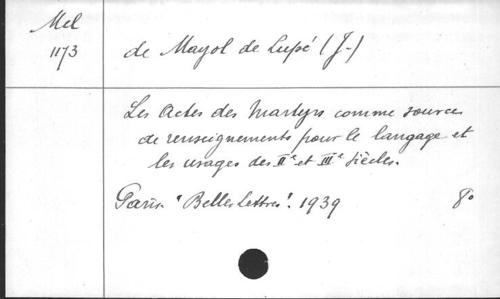 Mel
1173
de Mayol de Lupé (J.)
Les Actes des Martyrs comme sources
de renseignements pour le langage et
les usages des IIe et IIIe siècles.
Paris. "Belles Lettres". 1939 8o